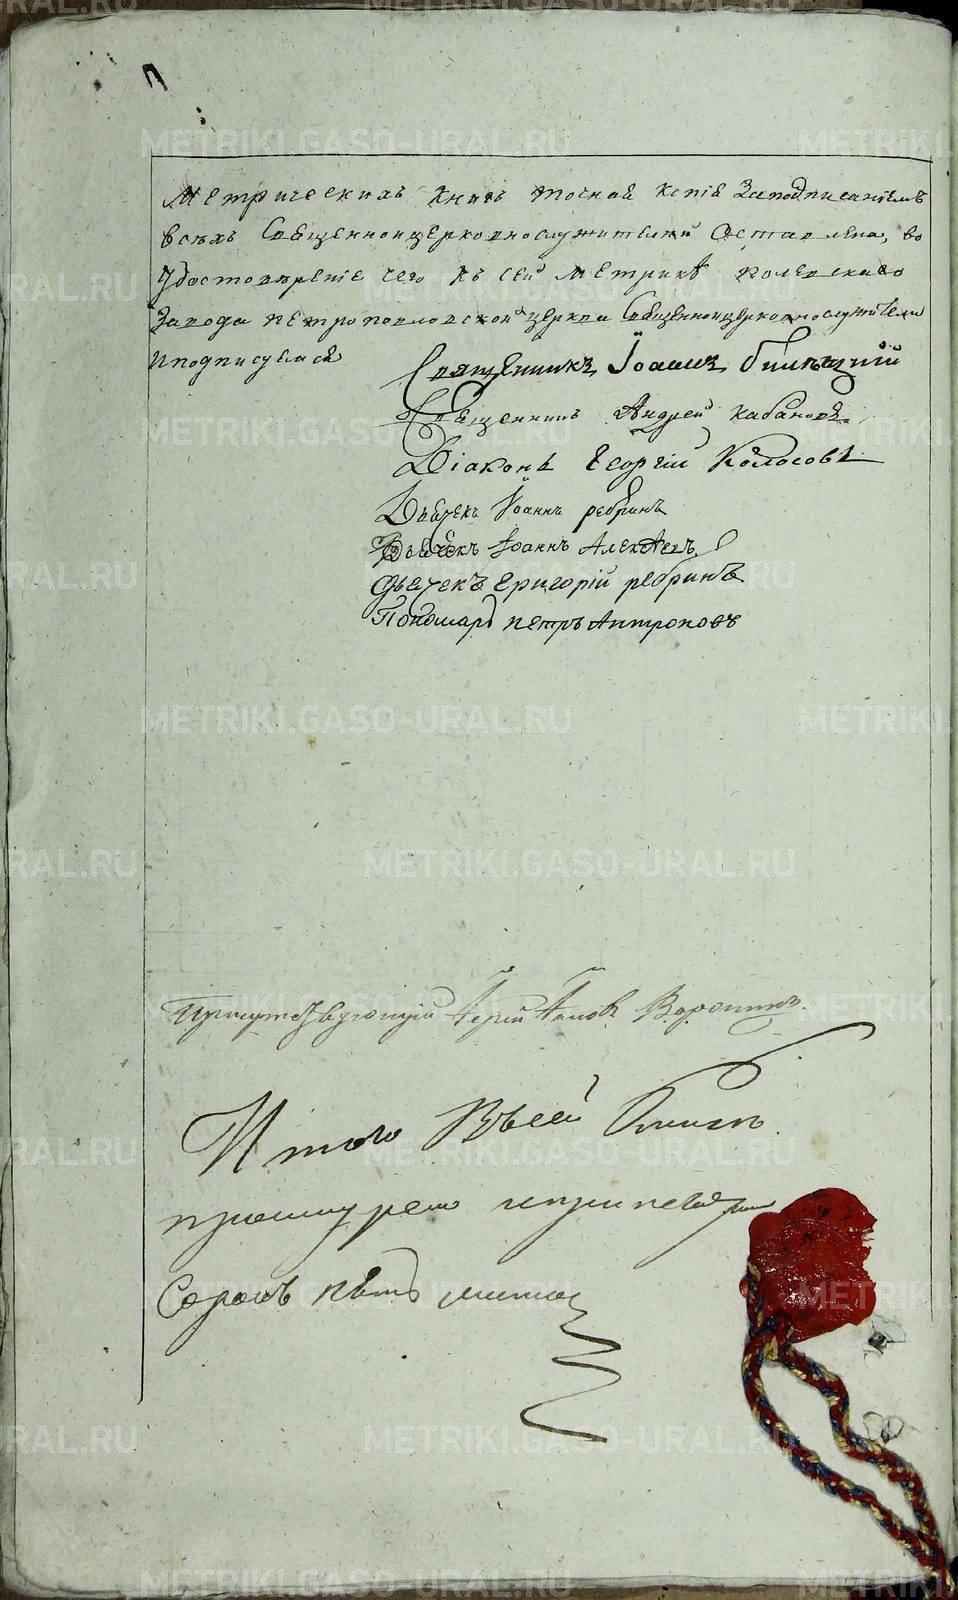 Метрическихъ книгъ точная копiя Заподписанiемъ
всѣхъ Священноицерковнослужителей Оставлена, во
Удостовѣренiе чего къ сей метрикѣ полевскаго
Завода петропавловской церкви Священноицерковнослужители
иподписуемся
Священникъ Iоаннъ
Священникъ Андрей кабановъ
Дiаконъ Георгiй Колосовъ
Дьячекъ Iоаннъ ребринъ
Дьячекъ Iоаннъ
дьячекъ григорiй ребринъ
Пономарь петръ Антроповъ
Присутствующiй Iерей Iаковъ
Итого Въсей Книгѣ
прошнуренo ипропечатано
Сорокъ пять листов
METRIKI.GASO-URAL.RU